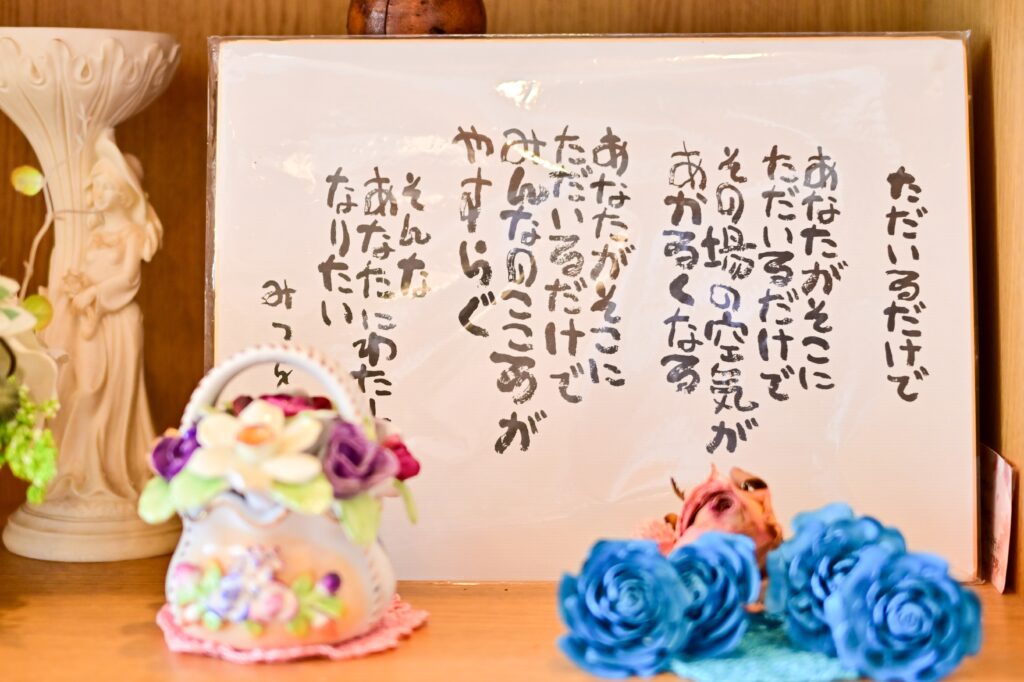 ただいるだけで
あなたがそこに
ただいるだけで
その場の空気が
あかるくなる
あなたがそこに
ただいるだけで
みんなのこころが
やすらぐ
そんな
あなたにわたし
なりたい
みつを